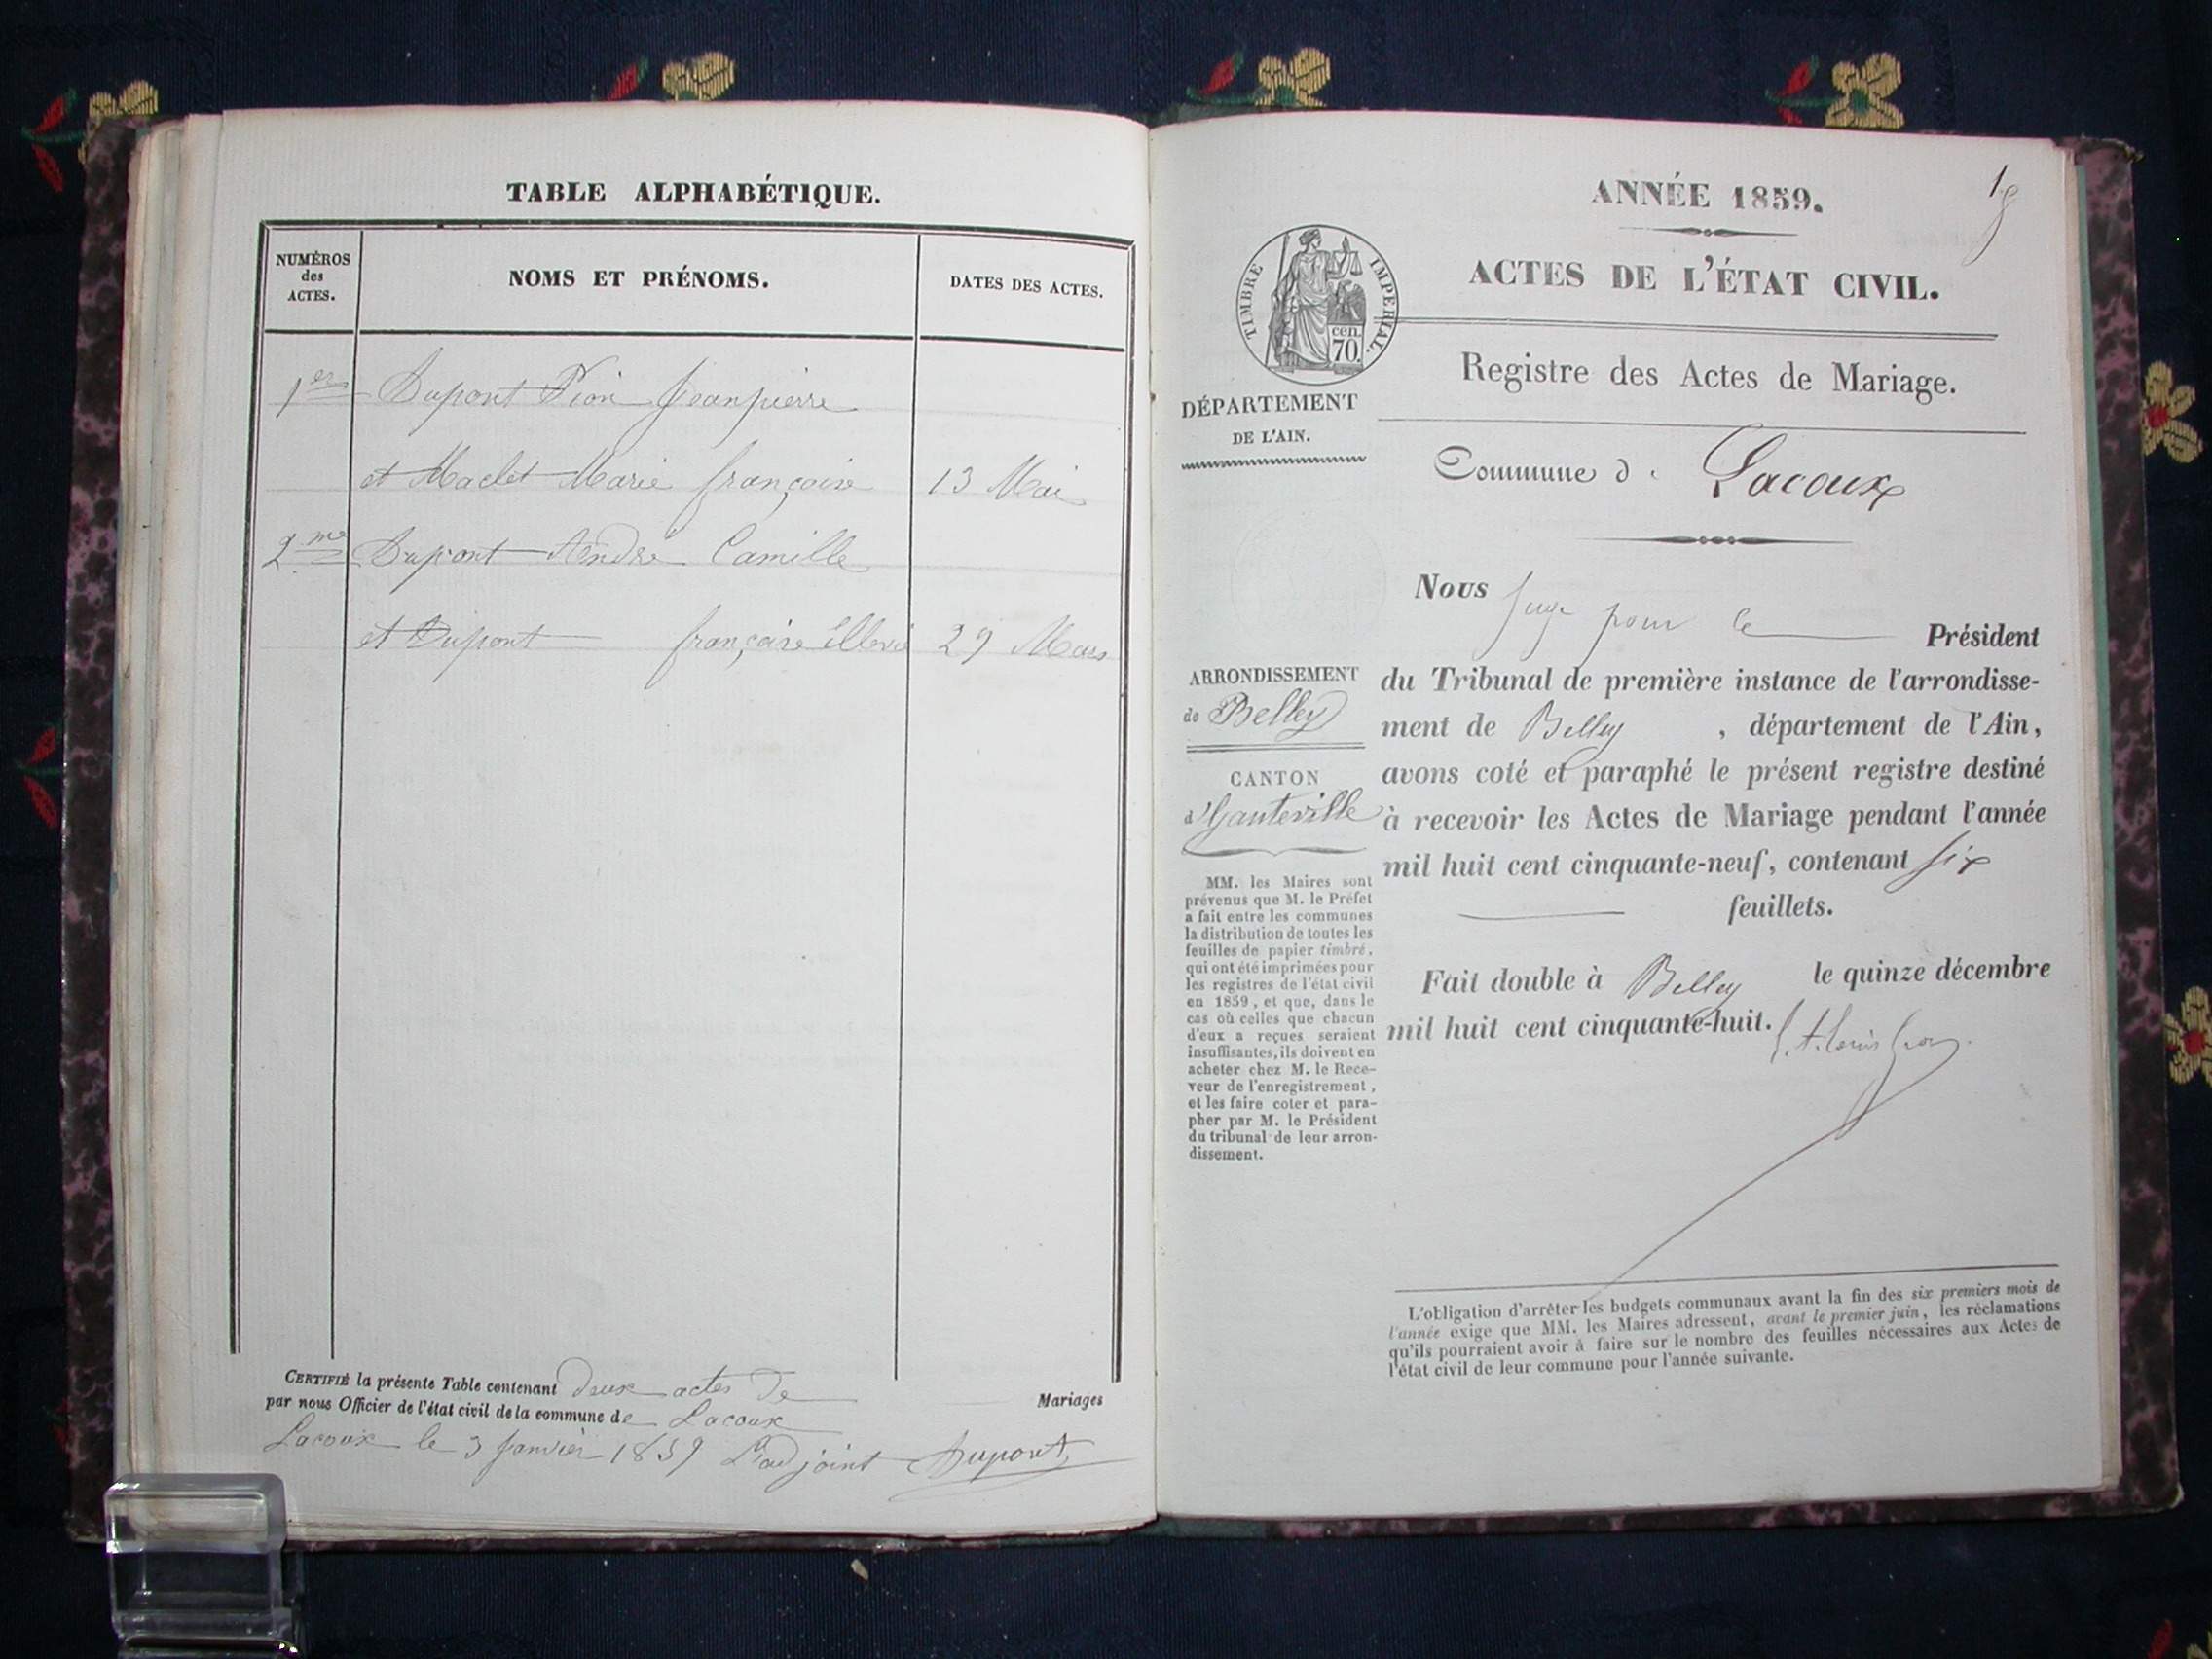 TABLE ALPHABÉTIQUE.
NUMÉROS
des
ACTES.
NOMS ET PRÉNOMS.
DATES DES ACTES.
1er Dupont Pion Jeanpierre
et Maclet Marie françoise 13 Mai
2me Dupont André Camille
et Dupont françoise 29 Mars
CERTIFIÉ la présente Table contenant deux actes de Mariages
par nous Officier de l'état civil de la commune de Lacoux
Lacoux le 3 Janvier 1859 L'adjoint Dupont
1
ANNÉE 1859.
ACTES DE L'ÉTAT CIVIL.
TIMBRE IMPERIAL.
cen.
70.
Registre des Actes de Mariage.
DÉPARTEMENT
DE L'AIN.
Commune de Lacoux
Nous Juge pour le Président
du Tribunal de première instance de l'arrondisse-
ment de Belley, département de l'Ain,
avons coté et paraphé le présent registre destiné
à recevoir les Actes de Mariage pendant l'année
mil huit cent cinquante-neuf, contenant six
feuillets.
Fait double à Belley le quinze décembre
mil huit cent cinquante-huit.
ARRONDISSEMENT
de Belley
CANTON
d'Hauteville
MM. les Maires sont
prévenus que M. le Préfet
a fait entre les communes
la distribution de toutes les
feuilles de papier timbré,
qui ont été imprimées pour
les registres de l'état civil
en 1859, et que, dans le
cas où celles que chacun
d'eux a reçues seraient
insuffisantes, ils doivent en
acheter chez M. le Rece-
veur de l'enregistrement,
et les faire coter et para-
pher par M. le Président
du tribunal de leur arron-
dissement.
L'obligation d'arrêter les budgets communaux avant la fin des six premiers mois de
l'année exige que MM. les Maires adressent, avant le premier juin, les réclamations
qu'ils pourraient avoir à faire sur le nombre des feuilles nécessaires aux Actes de
l'état civil de leur commune pour l'année suivante.